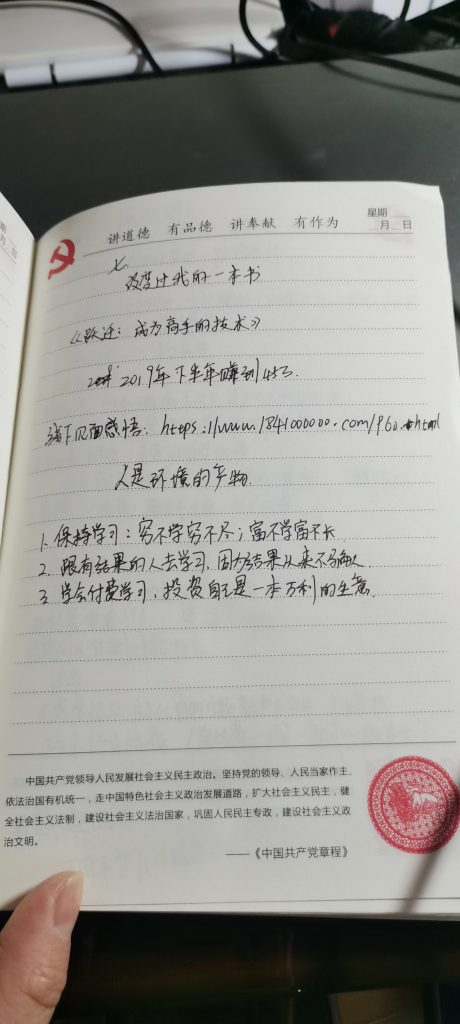 讲道德 有品德 讲奉献 有作为
星期
月 日
改变过我的一本书
《跃迁：成为高手的技术》
2019年下半年赚到45万
线下见面感悟：https://www.1841000000.com/960.html
人是环境的产物
1、保持学习：穷不学穷不尽；富不学富不长
2、跟有结果的人去学习，因为结果从来不骗人
3、学会付费学习，投资自己是一本万利的生意.
中国共产党领导人民发展社会主义民主政治。坚持党的领导、人民当家作主、
依法治国有机统一，走中国特色社会主义政治发展道路，扩大社会主义民主，健
全社会主义法制，建设社会主义法治国家，巩固人民民主专政，建设社会主义政
治文明。
——《中国共产党章程》